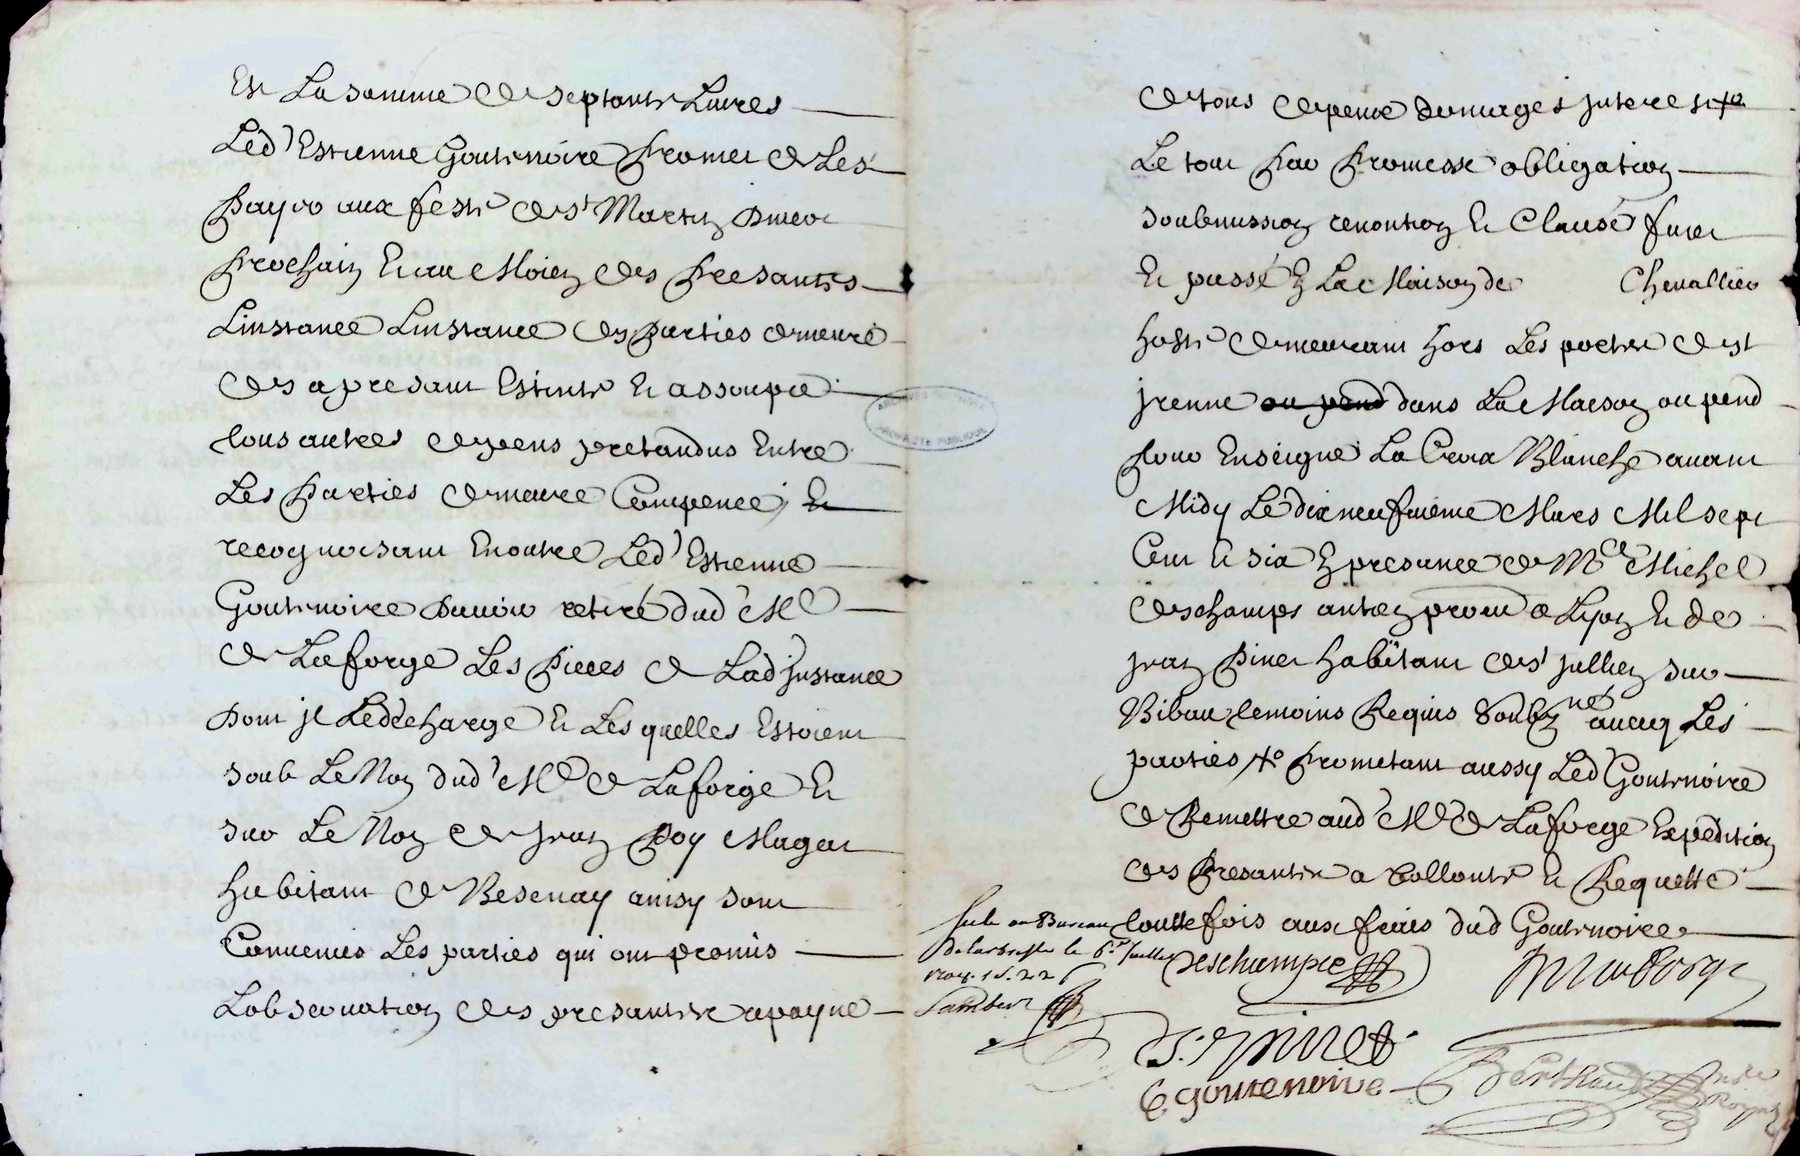 Et La somme de septante Livres
Led' Estienne Goutenoire promet de Les
payer aux feste de st Martin d'hiver
prochain Et au Moien des presantes
Linstance Linstance des parties demeure
des apresant Esteinte Et assoupie
tous autres depens pretandus Entre
Les parties demeure Compencé, Et
recognoissant En outre Led' Estienne
Goutenoire d'avoir retiré dud' Me
de Laforge Les pieces de Lad' Instance
dont jl Led' decharge Et Les quelles Estoient
soub Le Non dud' Me de Laforge Et
sur Le Non de jean poy Magat
habitant de Besenay ainsy sont
Convenus Les parties qui ont promis
Lobservation des presantes a payne
de tous depens domages jnterestz
Le tout par promesse obligation
soubmission renontion Et Clause fait
Et passé En La Maison de Chevallier
hoste demeurant hors Les portes de st
jrenne ou pend dans La Maison ou pend
pour Enseigne La Croix Blanche avant
Midy Le dix neufvieme Mars Mil sept
Cent Et six En presance de Me Michel
deschamps antien procur a Lyon Et de
jean pinet habitant de st jullien sur
Bibau temoins Requis Soubznés avecq Les
parties /+ prometant aussy Led' Goutenoire
de Remettre aud' Me de Laforge Expedition
des presantes a vollonte Et Requette
touttefois aux frais dud Goutenoire
Sçelé au Bureau
De larbresle le 6e Juillet
Lambert
Deschamps
Delaforge
J. pinet
E goutenoire
Berthaud
Nore
Royal